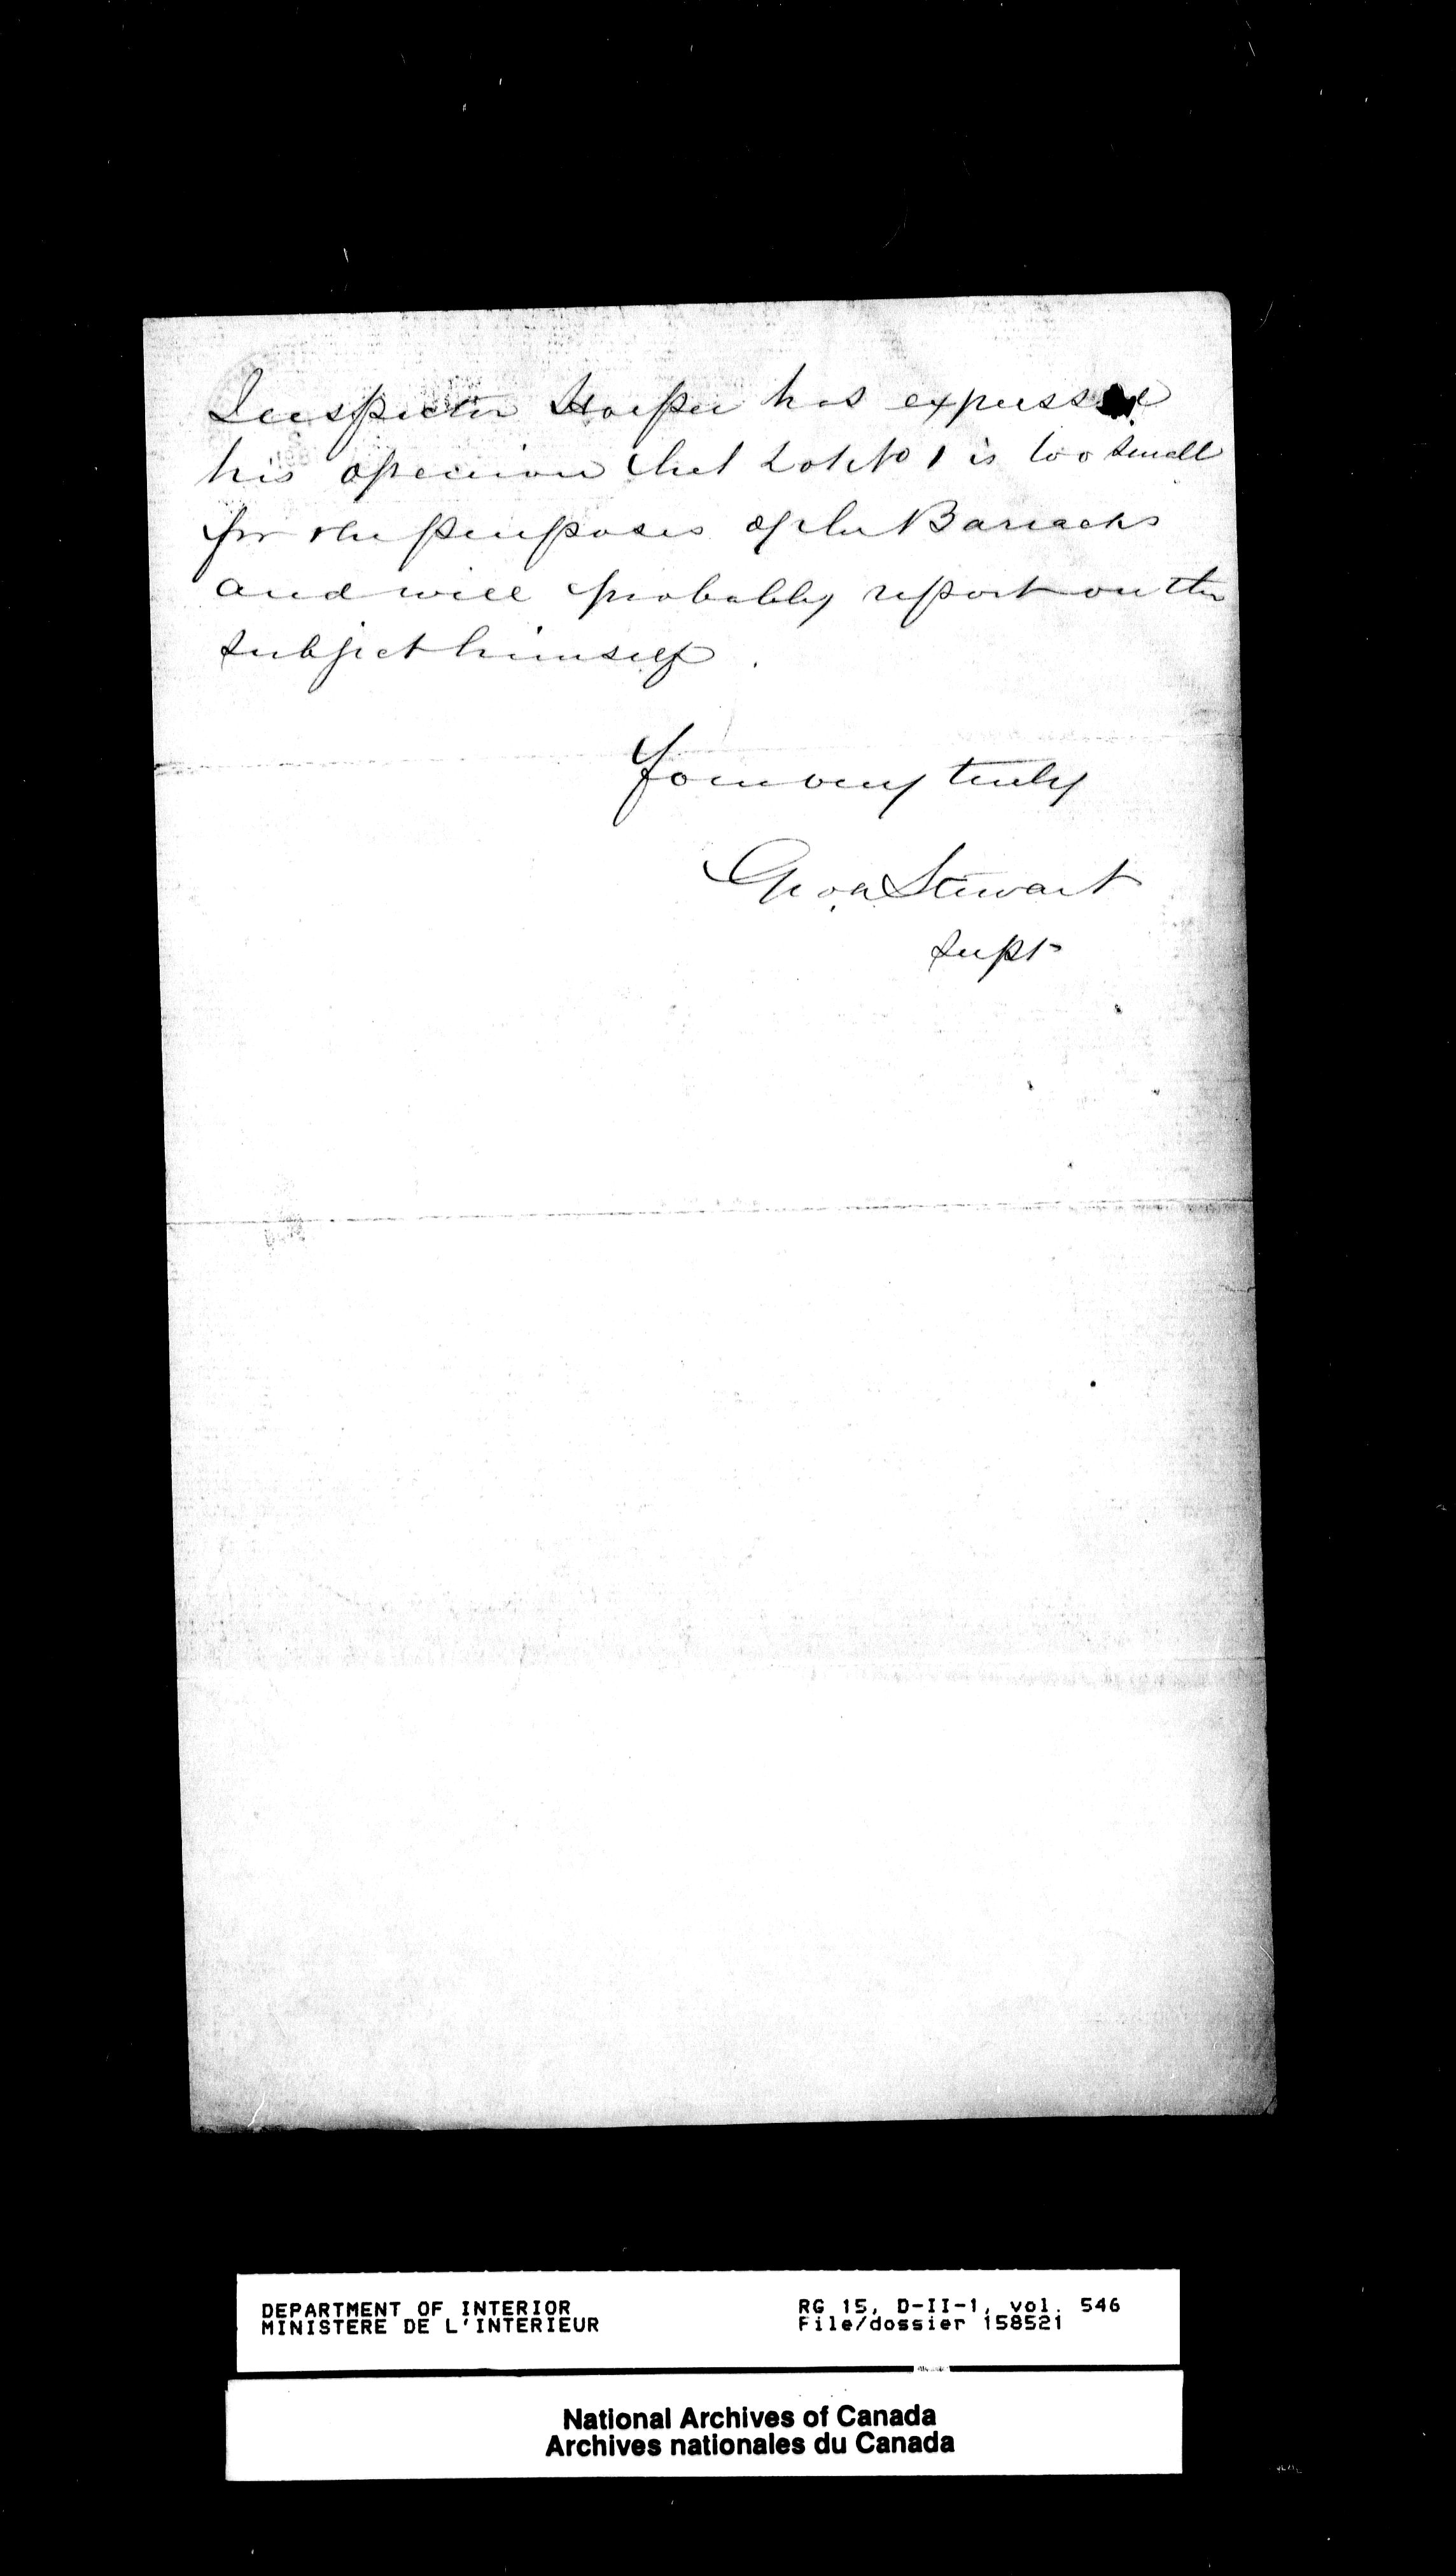 Inspector Harper has expressed
his opinion that Lot No 1 is too small
for the purposes of the Barracks
and will probably report on the
subject himself.
Yours very truly
Geo. A. Stewart
Supt
DEPARTMENT OF INTERIOR
MINISTERE DE L'INTERIEUR
RG 15, D-II-1, vol. 546
File/dossier 158521
National Archives of Canada
Archives nationales du Canada